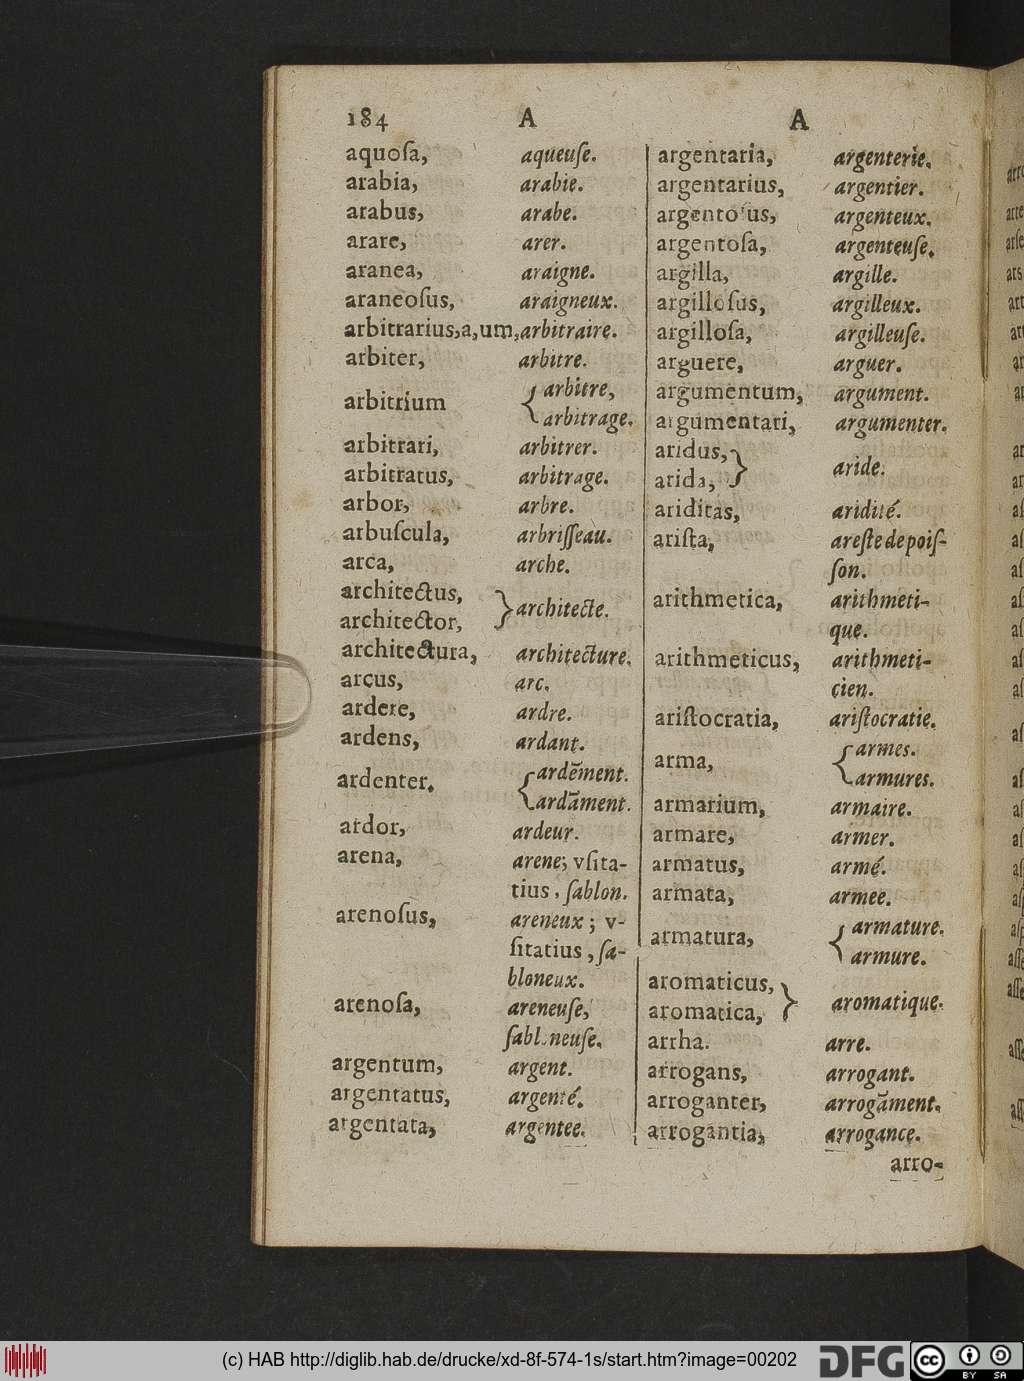 184 A A
aquoſa, aqueuſe.
arabia, arabie.
arabus, arabe.
arare, arer.
aranea, araigne.
araneoſus, araigneux.
arbitrarius,a,um, arbitraire.
arbiter, arbitre.
arbitrium { arbitre,
arbitrage.
arbitrari, arbitrer.
arbitratus, arbitrage.
arbor, arbre.
arbuſcula, arbriſſeau.
arca, arche.
architectus,
architector, } architecte.
architectura, architecture.
arcus, arc.
ardere, ardre.
ardens, ardant.
ardenter, { ardēment.
ardāment.
ardor, ardeur.
arena, arene; vſita-
tius, ſablon.
arenoſus, areneux; v-
ſitatius, ſa-
bloneux.
arenoſa, areneuſe,
ſabloneuſe.
argentum, argent.
argentatus, argenté.
argentata, argentee.
argentaria, argenterie.
argentarius, argentier.
argentoſus, argenteux.
argentoſa, argenteuſe.
argilla, argille.
argilloſus, argilleux.
argilloſa, argilleuſe.
arguere, arguer.
argumentum, argument.
argumentari, argumenter.
aridus,
arida, } aride.
ariditas, aridité.
ariſta, areſte de poiſ-
ſon.
arithmetica, arithmeti-
que.
arithmeticus, arithmeti-
cien.
ariſtocratia, ariſtocratie.
arma, { armes.
armures.
armarium, armaire.
armare, armer.
armatus, armé.
armata, armee.
armatura, { armature.
armure.
aromaticus,
aromatica, } aromatique.
arrha. arre.
arrogans, arrogant.
arroganter, arrogāment.
arrogantia, arrogance.
arro-
(c) HAB http://diglib.hab.de/drucke/xd-8f-574-1s/start.htm?image=00202 DFG cc BY SA